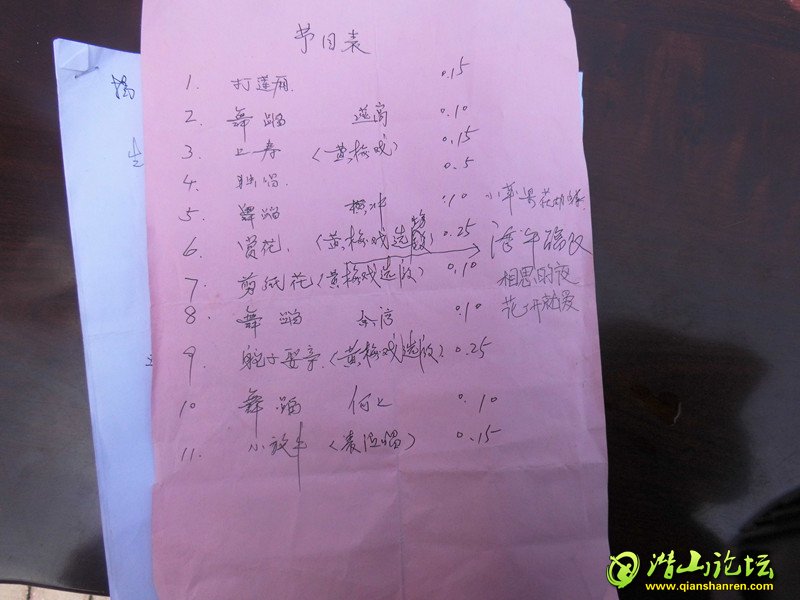 节目表
1. 打莲厢. 0.15
2. 舞蹈 逆高 0.10
3. 上寿 (黄梅戏) 0.15
4. 独唱. 0.5
5. 舞蹈 横冲 0.10
6. 赏花. (黄梅戏选段) 0.25
7. 剪纸花 (黄梅戏选段) 0.10
8. 舞蹈 余湾 0.10
9. 驼子娶亲 (黄梅戏选段) 0.25
10 舞蹈 何上 0.10
11. 小放牛 (表演唱) 0.15
小苹果
相思的夜
花开就爱
潜山论坛
www.qianshanren.com